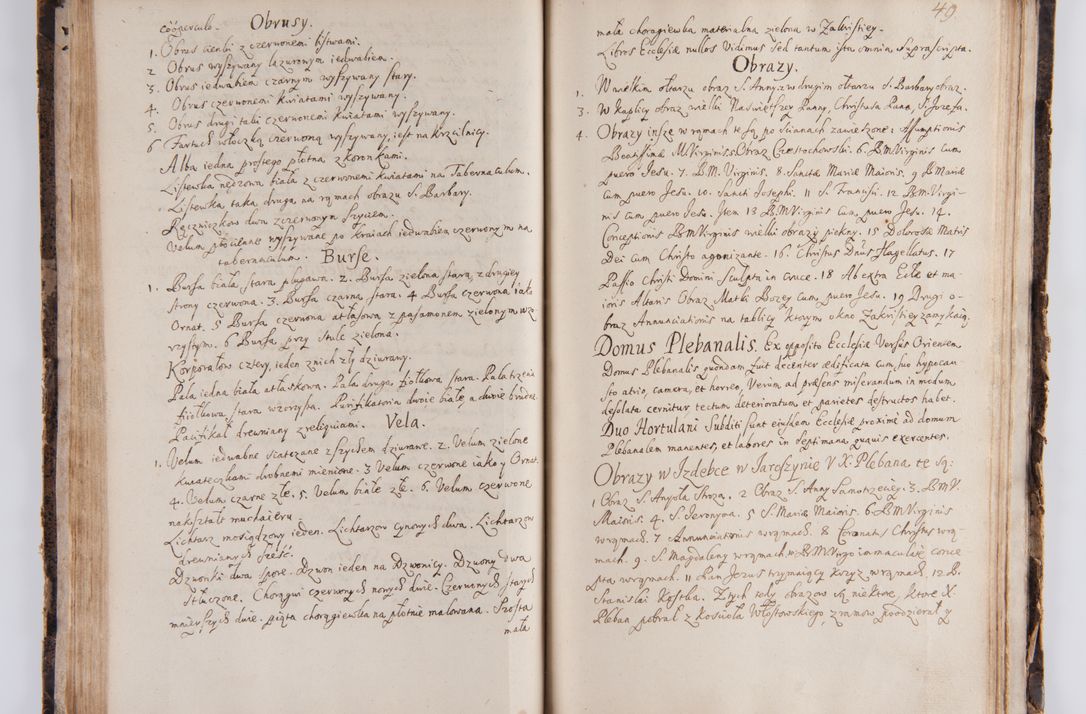 cöoperculo. Obrusy.
1. Obrus cienki z czerwonemi listwami.
2 Obrus wyszywany lazurowym iedwabiem.
3. Obrus iedwabiem czarnym wyszywany stary.
4. Obrus czerwonemi kwiatami wyszywany.
5. Obrus drugi taki czerwonemi kwiatami wyszywany.
6 Fartuch włoczką czerwoną wyszywany, iest na Krzcilnicy.
Alba iedna prostego płotna z koronkami.
Listewka nędzowna biała z czerwonemi kwiatami na Tabernaculum.
Listewka taka druga na rąmach obrazu S. Barbary.
Ręczniczkow dwa z czerwonym szyciem.
Velum płocienne wyszywane po kraiach iedwabiem czerwonym na
tabernaculum. Burse.
1. Bursa biała stara plugawa. 2. Bursa zielona stara, z drugiey
strony czerwona. 3. Bursa czarna stara. 4 Bursa czerwona iako
Ornat. 5 Bursa czerwona atłasowa z pasamonem zielonym wz-
rzystym. 6 Bursa przy stule zielona.
Korporałow cztery, ieden z nich zły dziurany.
Pala iedna biała atłaskowa. Pala druga fiołkowa stara. Pala trzecia
fiiołkowa stara wzorzysta. Purifikatoria dwoie białe, a dwoie brudne
Pacifikał drewniany z reliquiami. Vela.
1. Velum iedwabne siatczane z szyciem dziurane. 2. Velum zielone
kwiateczkami drobnemi mienione. 3 Velum czerwone iako y Ornat.
4. Velum czarne złe. 5. Velum białe złe. 6. Velum czerwone
nakształt muchaieru.
Lichtarz mosiądzowy ieden. Lichtarzow cynowych dwa. Lichtarzow
drewnianych sześć.
Dzwonki dwa spore. Dzwon ieden na Dzwonicy. Dzwony dwa
stłuczone. Chorągwi czerwonych nowych dwie. Czerwonych starych
mnieyszych dwie. piąta chorągiewka na płotnie malowana. Szosta
mała
49.
mała chorągiewka materialna zielona w Zakristiey.
Libros Ecclesiæ nullos Vidimus sed tantum ista omnia suprascripta.
Obrazy.
1. W wielkim ołtarzu obraz S. Anny, 2 w drugim ołtarzu S. Barbary obraz.
3. W kaplicy obraz wielki Naświętszey Panny, Christusa Pana, S. Jozefa.
4. Obrazy insze w rąmach te są, po scianach zawieszone: Assumptionis
Beatissimæ M. Virginis. 5. Obraz Częstochowski. 6. B.M. Virginis cum
puero Jesu. 7. B.M. Virginis. 8. Sanctæ Mariæ Maioris. 9 B. Mariæ
cum puero Jesu. 10. Sancti Josephi. 11 S. Francisci. 12 B.M. Virgi-
nis cum puero Jesu. Item 13 B.M. Virginis cum puero Jesu. 14.
Conceptionis B.M. Virginis wielki obraz y piękny. 15 Dolorosæ Matris
Dei cum Christo agonizante. 16. Christus Dnus Flagellatus. 17
Passio Christi Domini Sculpta in Cruce. 18 Ab extra Ecclæ et ma-
ioris Altaris Obraz Matki Bozey cum puero Jesu. 19 Drugi o-
braz Annunciationis na tablicy ktorym okno Zakristiey zamykaią.
Domus Plebanalis. Ex opposito Ecclesiæ Versus Orientem.
Domus Plebanalis quondam fuit decenter ædificata cum suo hypocau-
sto atrio, camera, et horreo, Verum ad præsens miserandum in modum
desolata cernitur tectum deterioratum, et parietes destructos habet.
Duo Hortulani Subditi sunt eiusdem Ecclesiæ proximè ad domum
Plebanalem manentes, et labores in septimana quavis exercentes.
Obrazy w Izdebce w Jaroszynie V X. Plebana. te są:
1 Obraz S. Anyoła Stroza. 2 Obraz S. Anny Samotrzeciey. 3. B.M.V.
Maioris. 4. S. Jeronyma. 5 S. Mariæ Maioris. 6. B.M. Virginis
w rąmach. 7 Annunciationis w rąmach. 8 Coronatus Christus w rą-
mach. 9. S. Magdaleny w rąmach. 10. B.M. Virgo immaculatè conce
pta, w rąmach. 11 Pan Jezus trzymaiący krzyz w rąmach. 12. B.
Stanislai Kostka. Z tych tedy obrazow są niektore, ktore X.
Pleban pobrał z kościoła Włostowskiego, z ramow poodzierał y